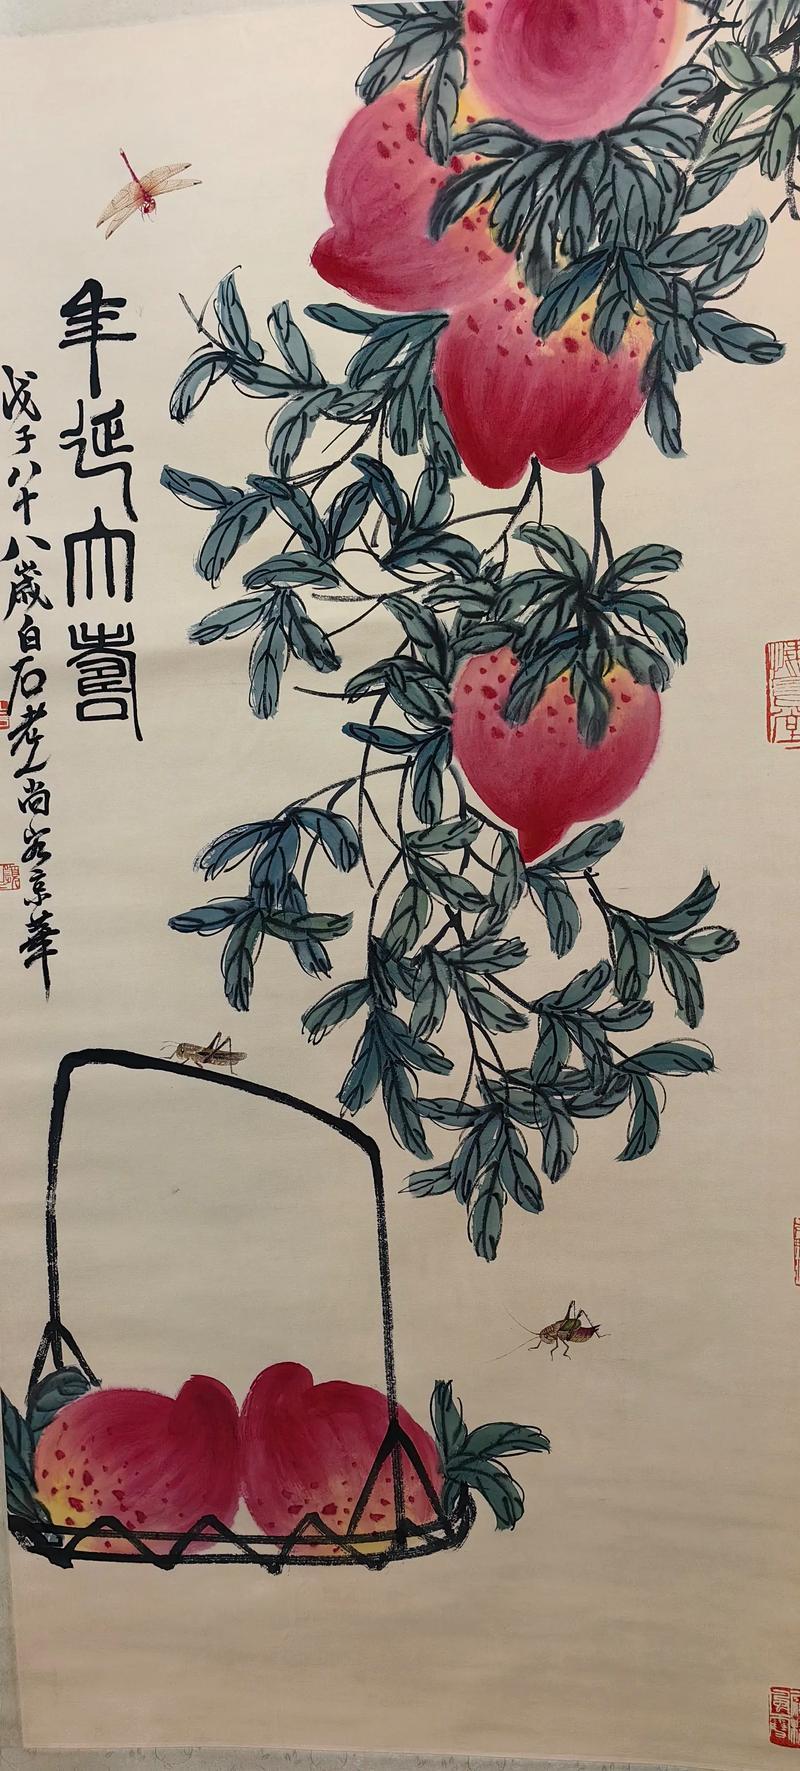 年延大壽
戊子八十八歲白石老人尚客京華